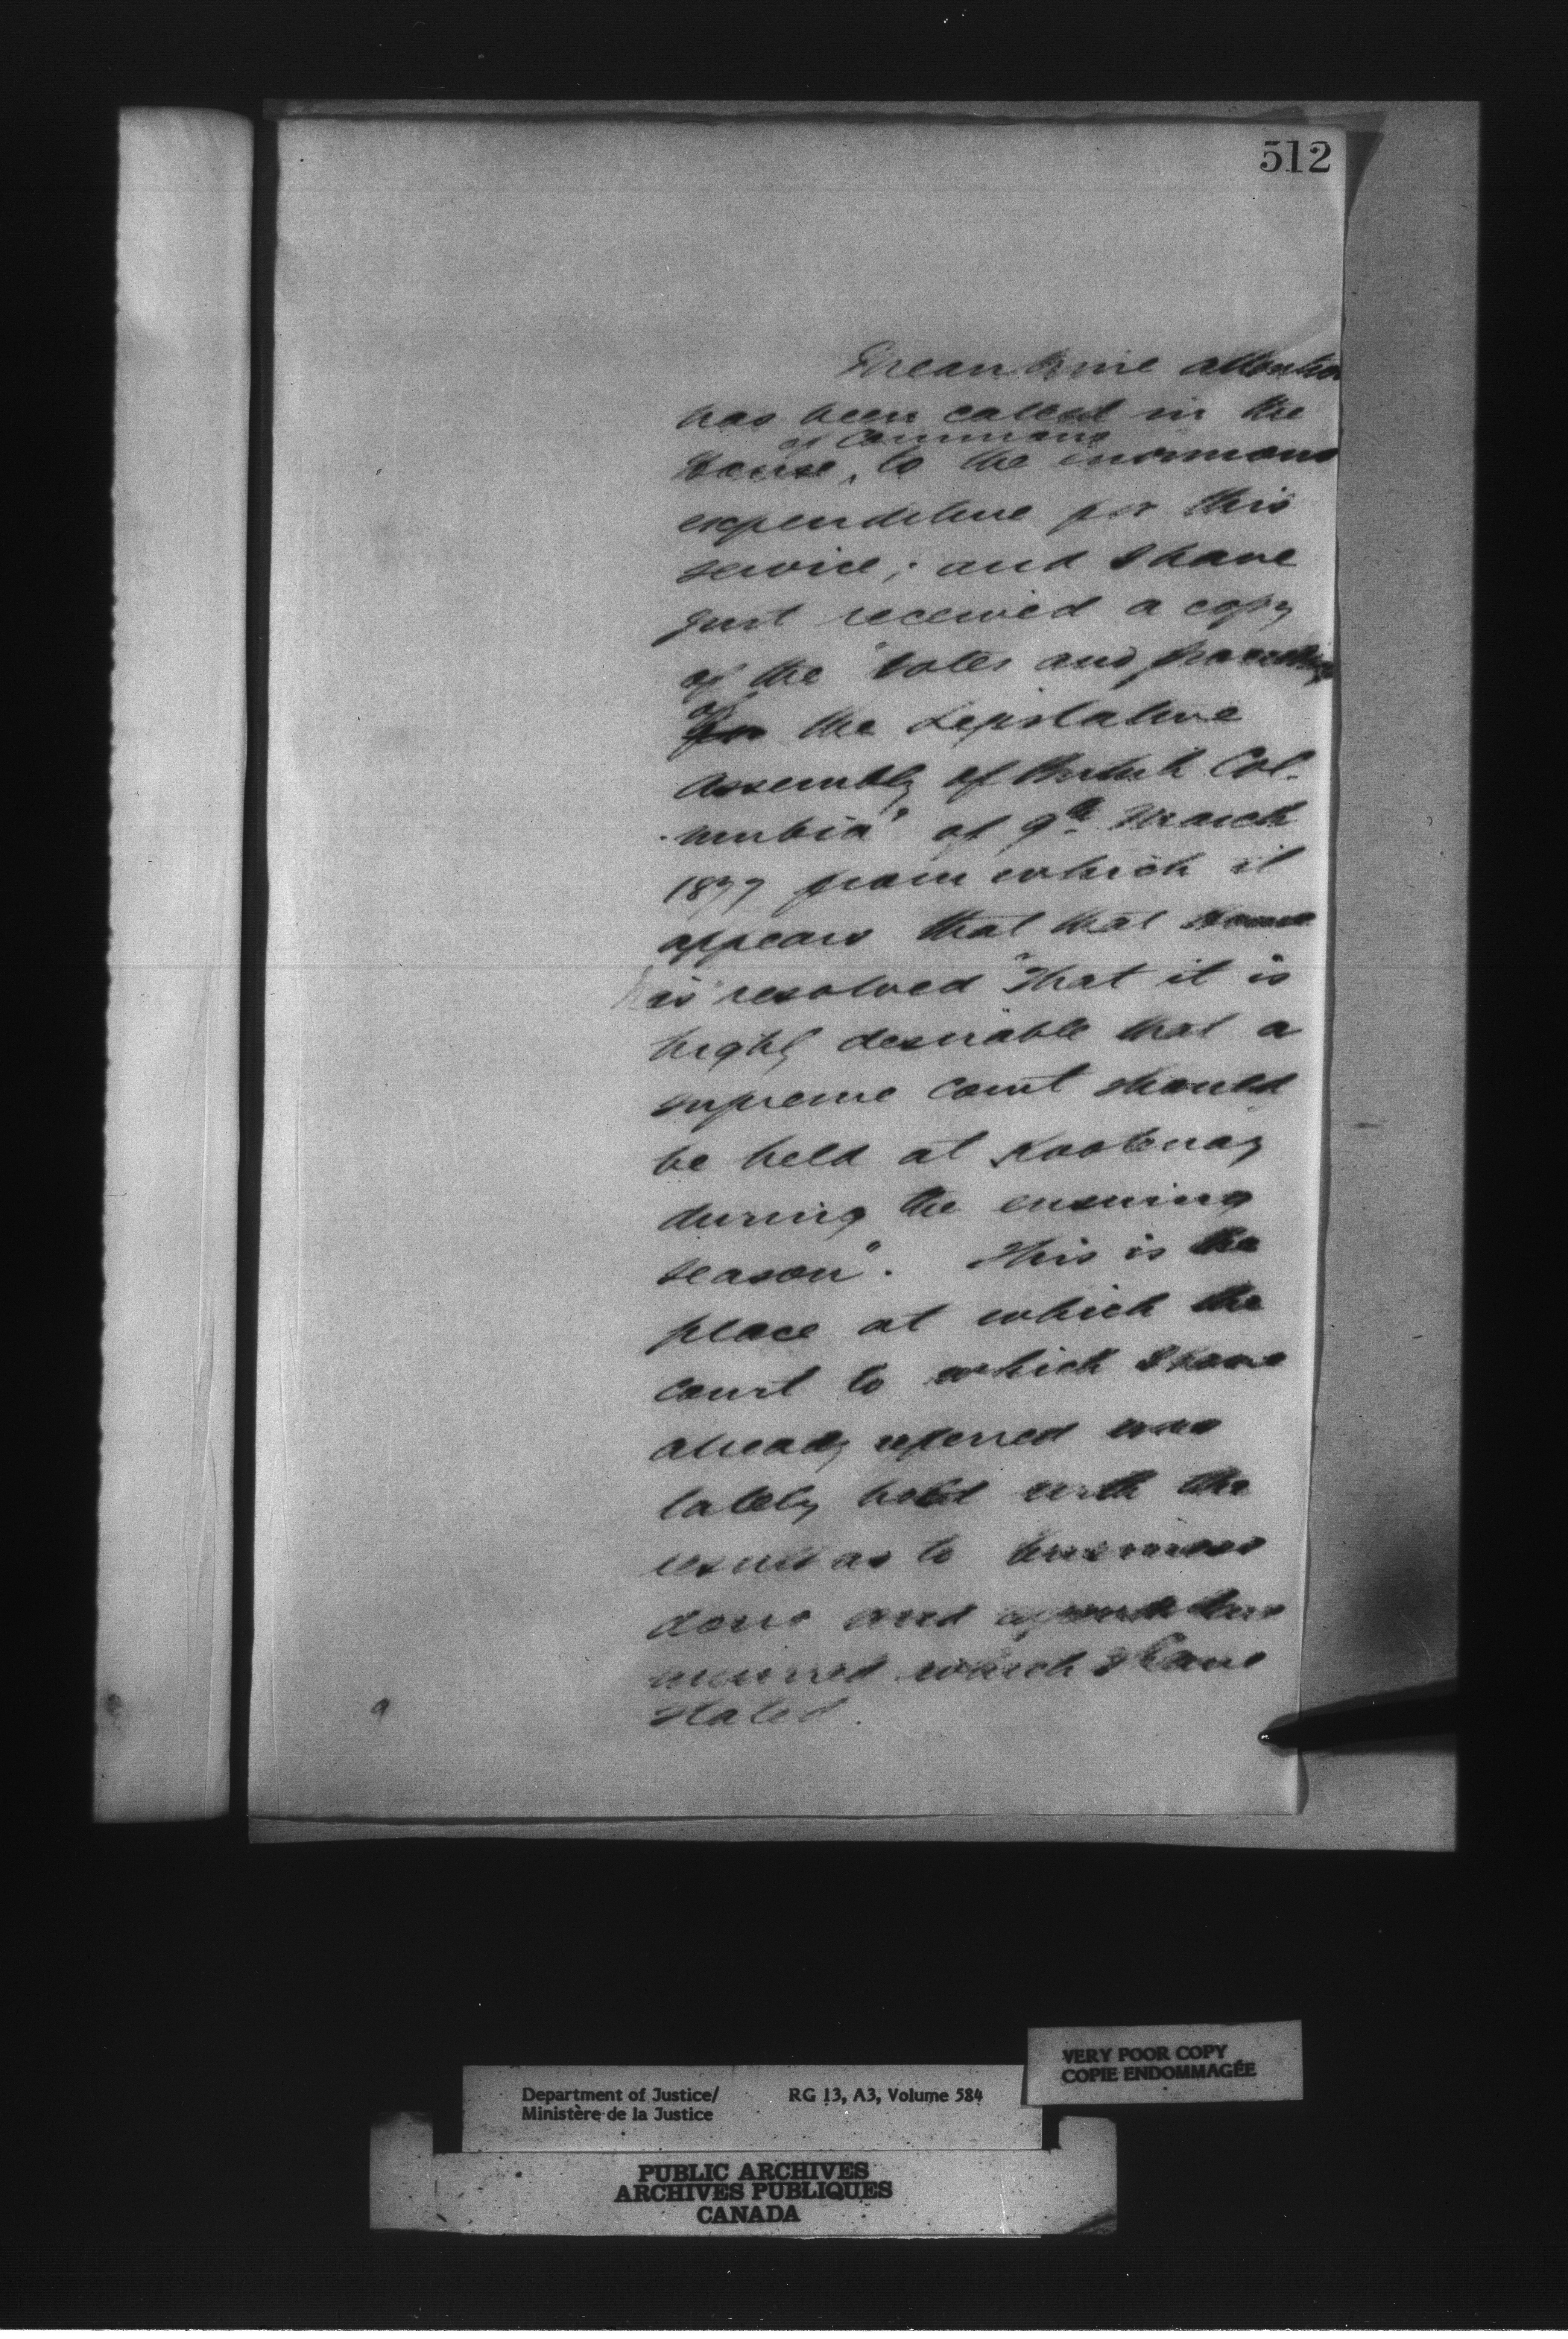 512
Meantime attention
has been called in the
of Commons
House, to the enormous
expenditure for this
service; and I have
just received a copy
of the "Votes and proceedings
of
for the Legislative
Assembly of British Col-
umbia" of 9th March
1877 from which it
appears that that House
has resolved "That it is
highly desirable that a
supreme court should
be held at Kootenay
during the ensuing
season". This is the
place at which the
court to which I have
already referred was
lately held with the
result as to business
done and expenditure
incurred which I have
stated.
VERY POOR COPY
COPIE ENDOMMAGÉE
Department of Justice/ RG 13, A3, Volume 584
Ministère de la Justice
PUBLIC ARCHIVES
ARCHIVES PUBLIQUES
CANADA